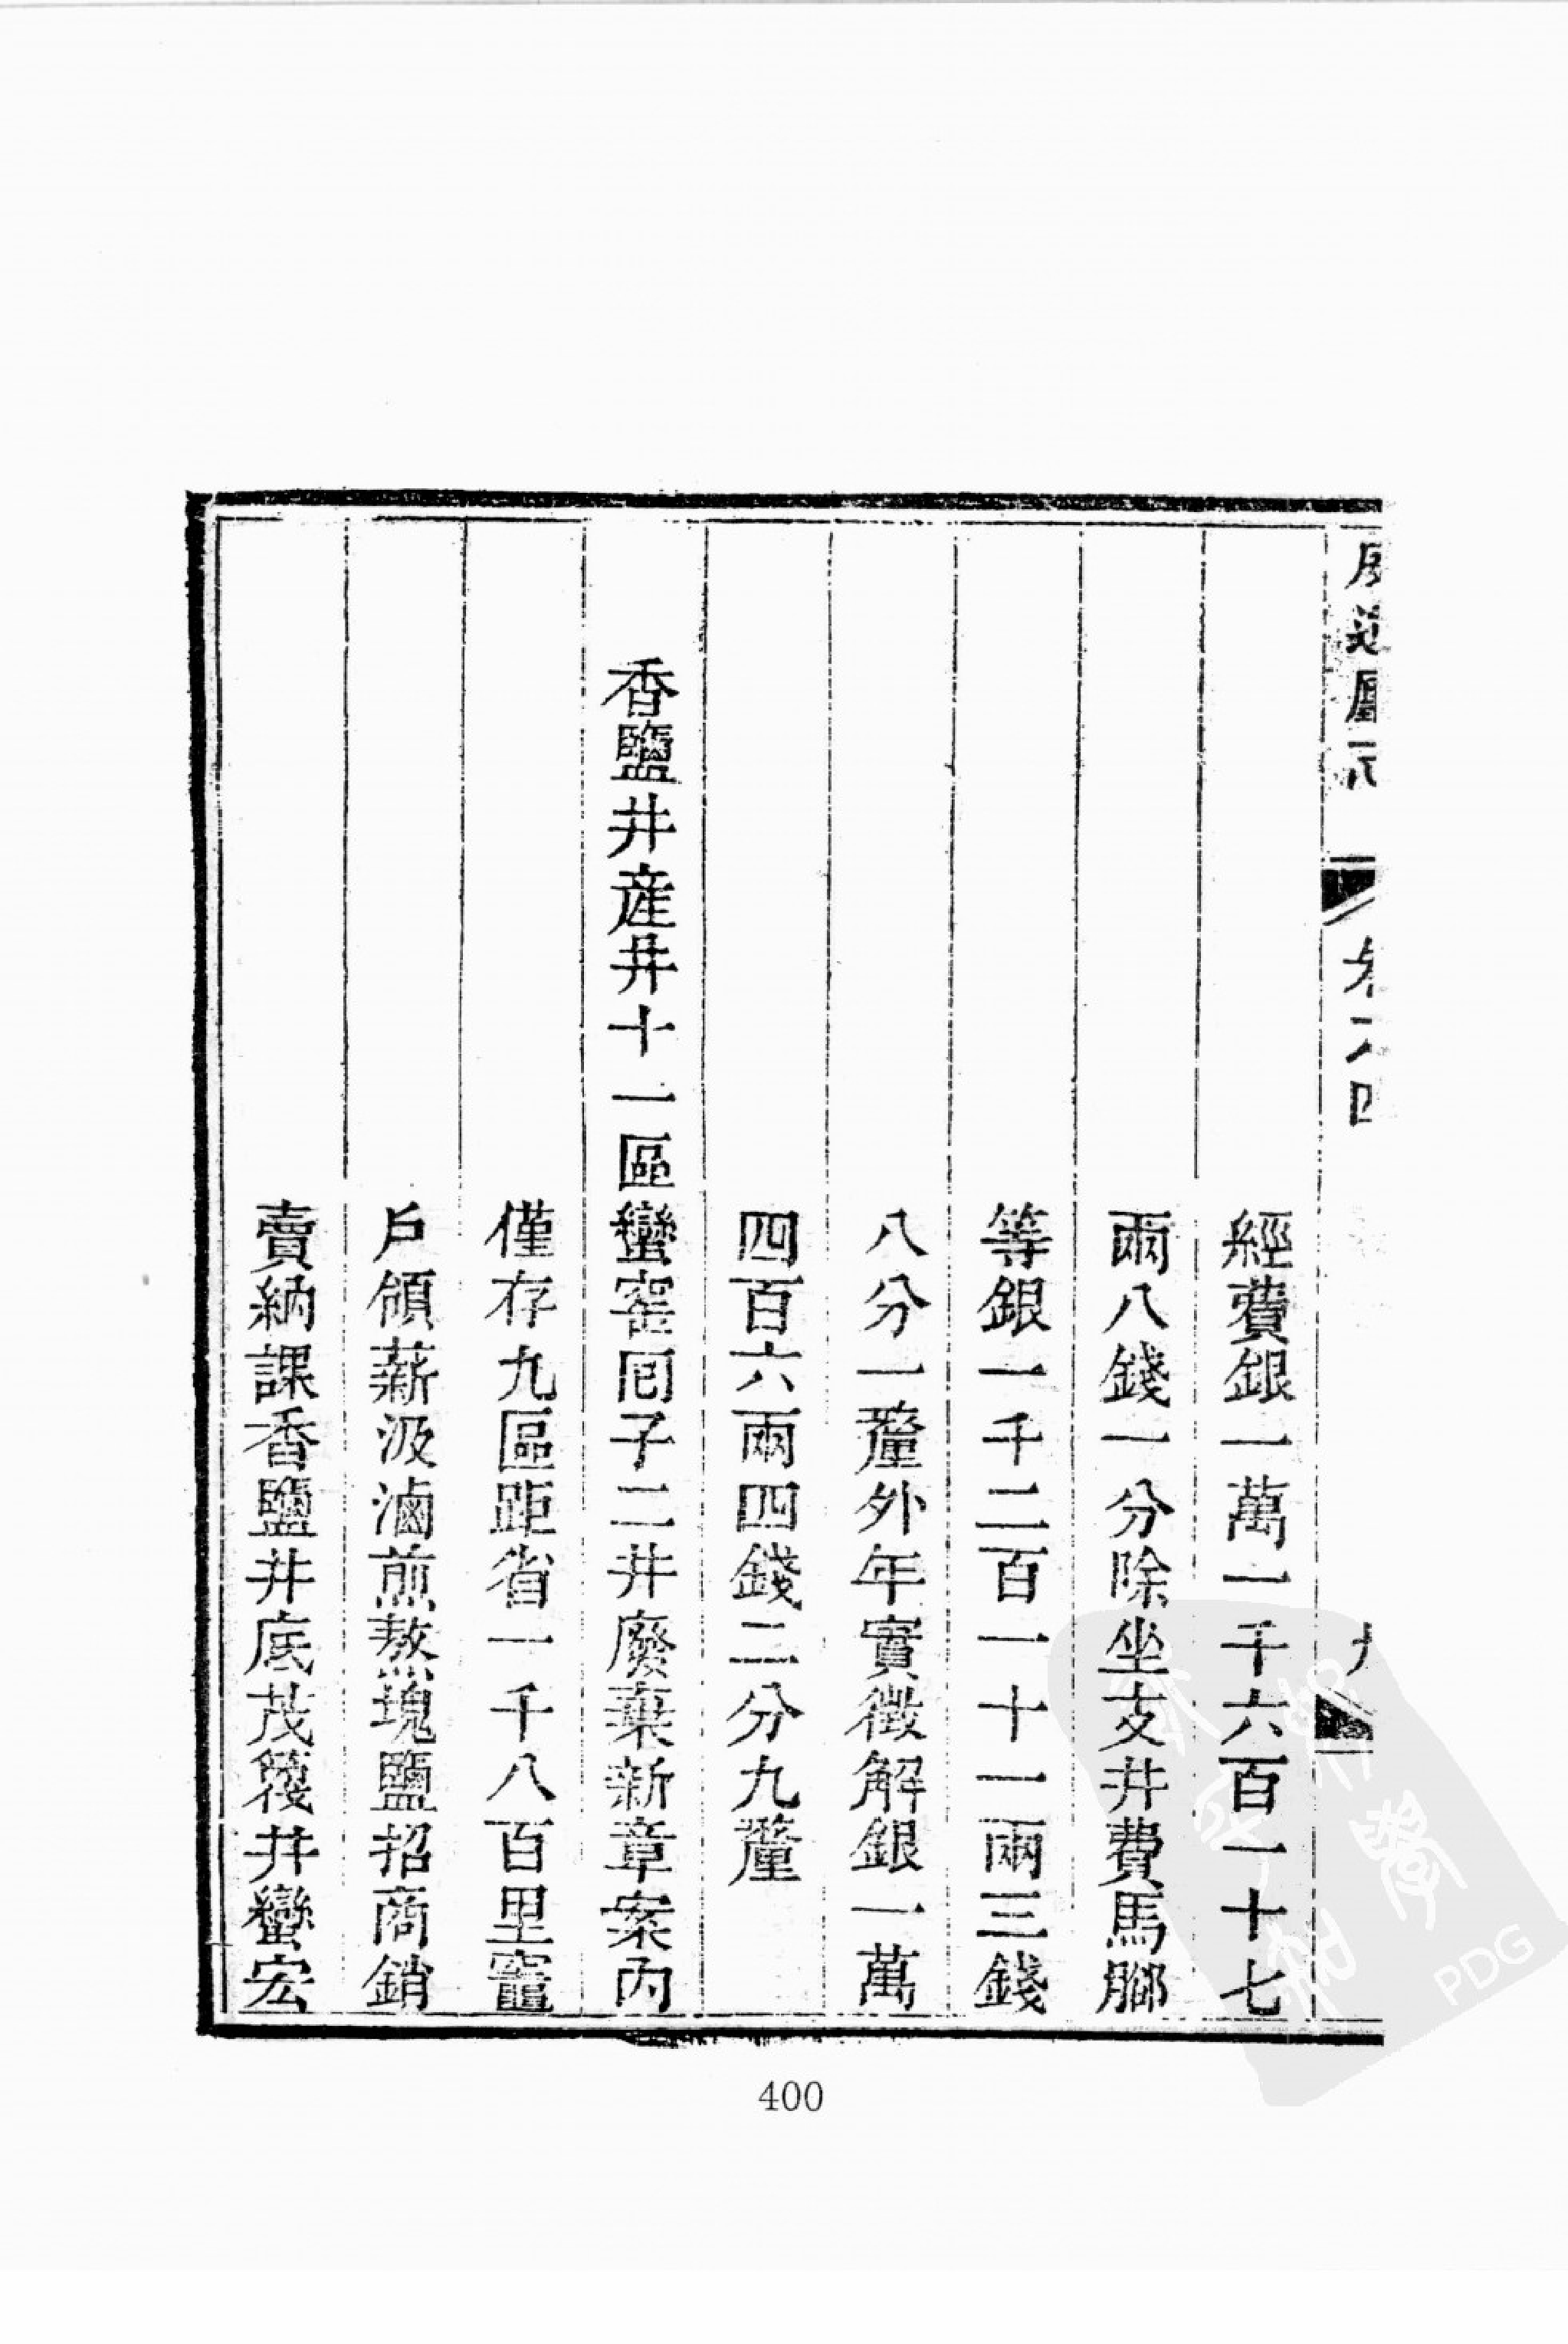 經費銀一萬一千六百一十七
兩八錢一分除坐支井費馬腳
等銀一千二百一十一兩三錢
八分一釐外年實徵解銀一萬
四百六兩四錢二分九釐
香鹽井産井十一區蠻窰囘子二井廢棄新章案內
僅存九區距省一千八百里竈
戶領薪汲滷煎熬塊鹽招商銷
賣納課香鹽井底茂篾井蠻宏
400
PDG